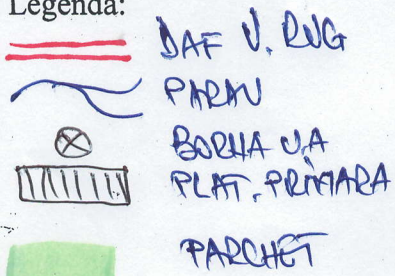 Legenda:
DAF V. RUG
PARAU
BORNA U.A
PLAT. PRIMARA
PARCHET